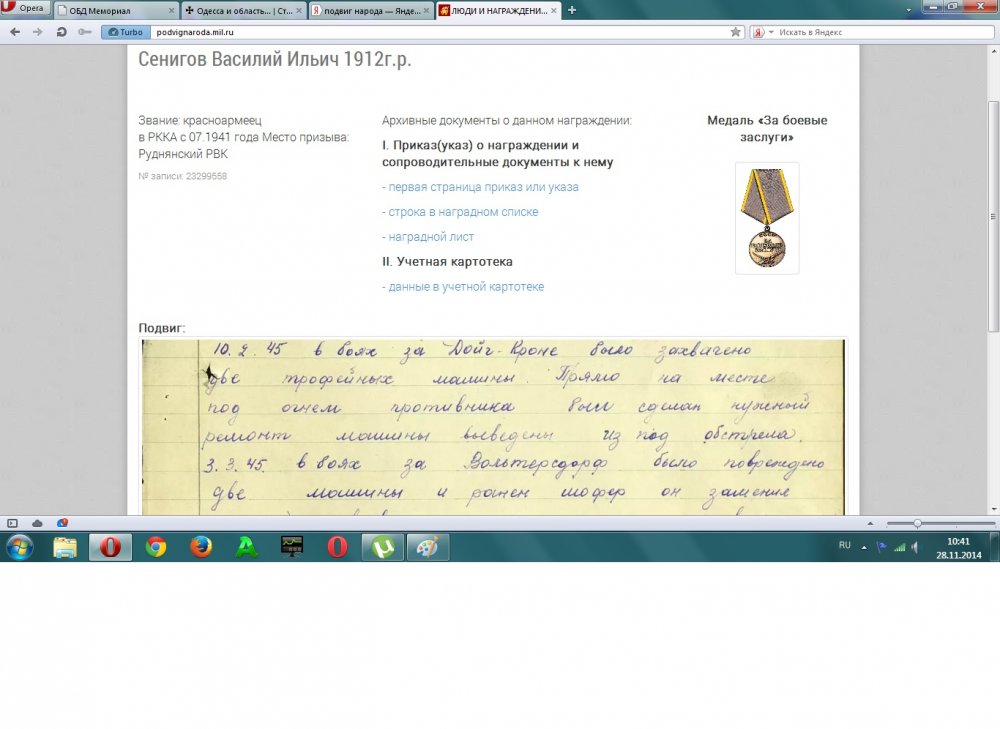 Opera
ОБД Мемориал
Одесса и область... | Ст...
подвиг народа — Янде...
ЛЮДИ И НАГРАЖДЕНИ...
Turbo
podvignaroda.mil.ru
Искать в Яндекс
Сенигов Василий Ильич 1912г.р.
Звание: красноармеец
в РККА с 07.1941 года Место призыва:
Руднянский РВК
№ записи: 23299558
Архивные документы о данном награждении:
I. Приказ(указ) о награждении и
сопроводительные документы к нему
- первая страница приказ или указа
- строка в наградном списке
- наградной лист
II. Учетная картотека
- данные в учетной картотеке
Медаль «За боевые
заслуги»
Подвиг:
10. 2. 45 в боях за Дойч-Кроне было захвачено
две трофейных машины. Прямо на месте
под огнем противника был сделан нужный
ремонт машины выведены из под обстрела.
3. 3. 45. в боях за Вольтерсдорф было повреждено
две машины и ранен шофер он заменил
RU
10:41
28.11.2014